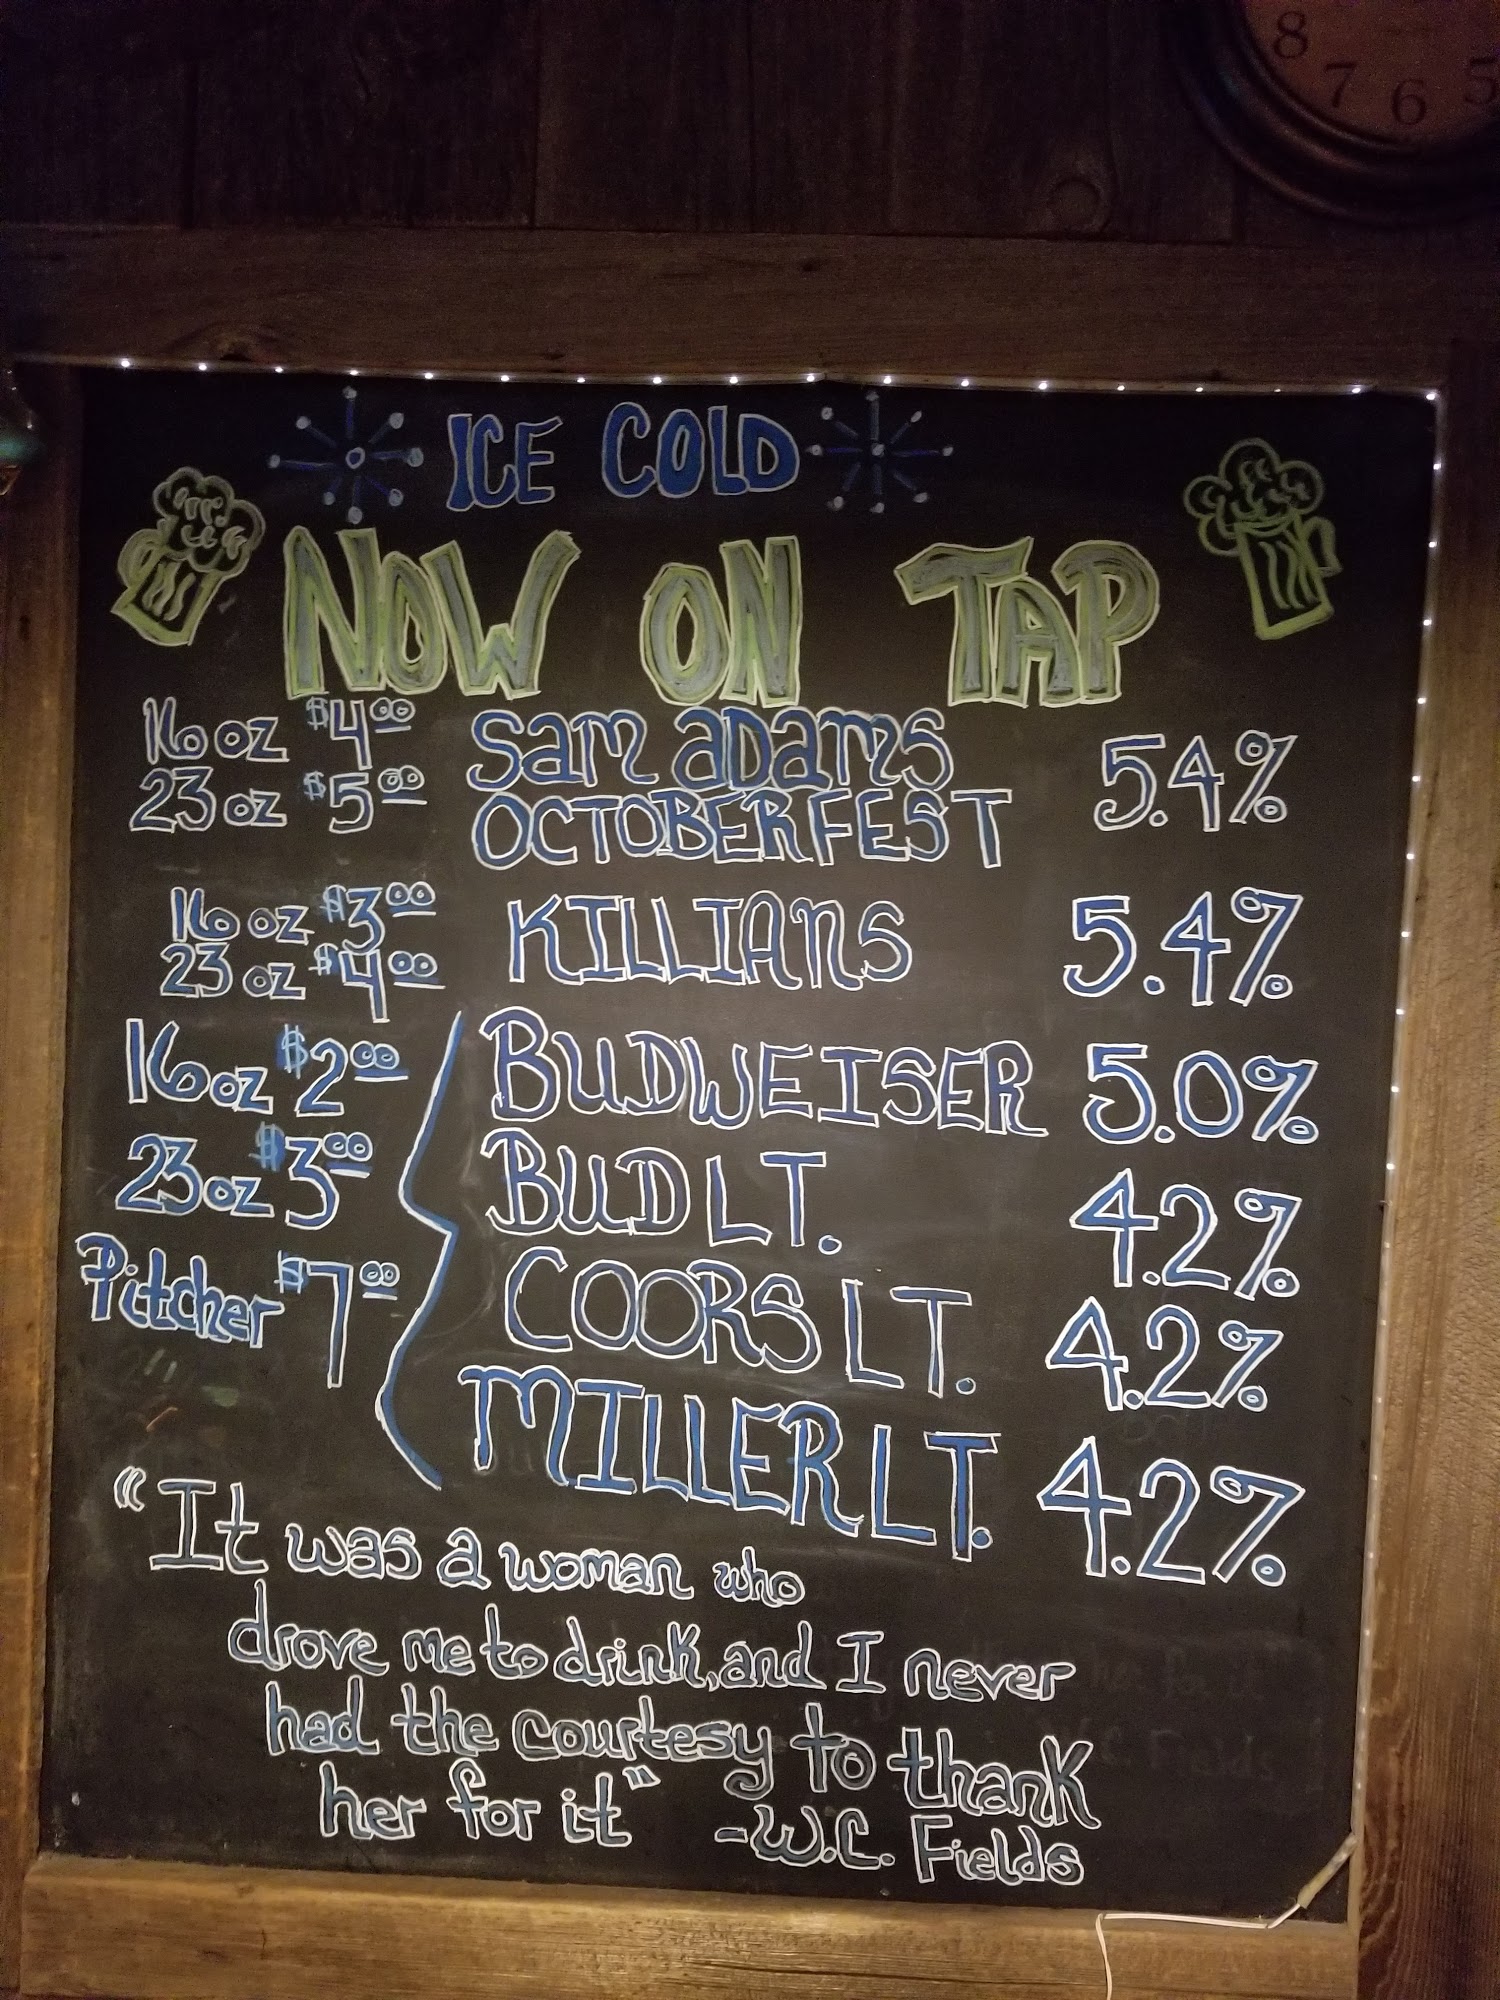 8 7 6 5
ICE COLD
NOW ON TAP
16 oz $4.00 SAM ADAMS
23 oz $5.00 OCTOBERFEST 5.4%
16 oz $3.00 KILLIANS 5.4%
23 oz $4.00
16 oz $2.00 BUDWEISER 5.0%
23 oz $3.00 BUD LT. 4.2%
Pitcher $7.00 COORS LT. 4.2%
MILLER LT. 4.2%
"It was a woman who
drove me to drink, and I never
had the courtesy to thank
her for it"
-W.C. Fields